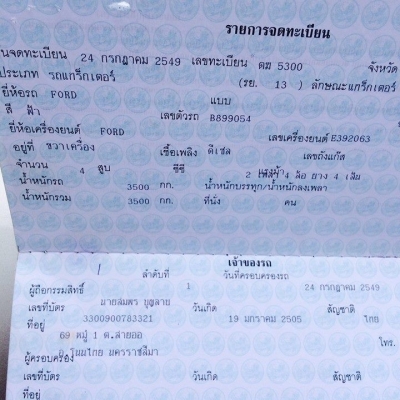 รายการจดทะเบียน
นจดทะเบียน 24 กรกฎาคม 2549 เลขทะเบียน ตฆ 5300 จังหวัด
ประเภท รถแทร็กเตอร์ (รย. 13 ) ลักษณะแทร็กเตอร์
ยี่ห้อรถ FORD แบบ
สี ฟ้า เลขตัวรถ B899054
ยี่ห้อเครื่องยนต์ FORD เลขเครื่องยนต์ E392063
อยู่ที่ ขวาเครื่อง เชื้อเพลิง ดีเซล เลขถังแก๊ส
จำนวน 4 สูบ ซีซี แรงม้า 2 เพลา 4 ล้อ ยาง 4 เส้น
น้ำหนักรถ 3500 กก. น้ำหนักบรรทุก/น้ำหนักลงเพลา
น้ำหนักรวม 3500 กก. ที่นั่ง คน
เจ้าของรถ
ลำดับที่ 1 วันที่ครอบครองรถ 24 กรกฎาคม 2549
ผู้ถือกรรมสิทธิ์ นายสมพร บุญสาย
เลขที่บัตร 3300900783321 วันเกิด 19 มกราคม 2505 สัญชาติ ไทย
ที่อยู่ 69 หมู่ 1 ต.สายออ โทร.
อ.โนนไทย นครราชสีมา
ผู้ครอบครอง
เลขที่บัตร วันเกิด สัญชาติ
ที่อยู่